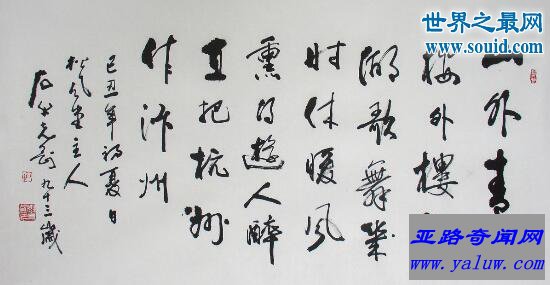 世界之最网
www.souid.com
山外青
樓外樓
湖歌舞幾
时休暖风
熏得遊人醉
直把杭州
作汴州
己丑年初夏日
松风堂主人
九十三歲
亚路奇闻网
www.yaluw.com